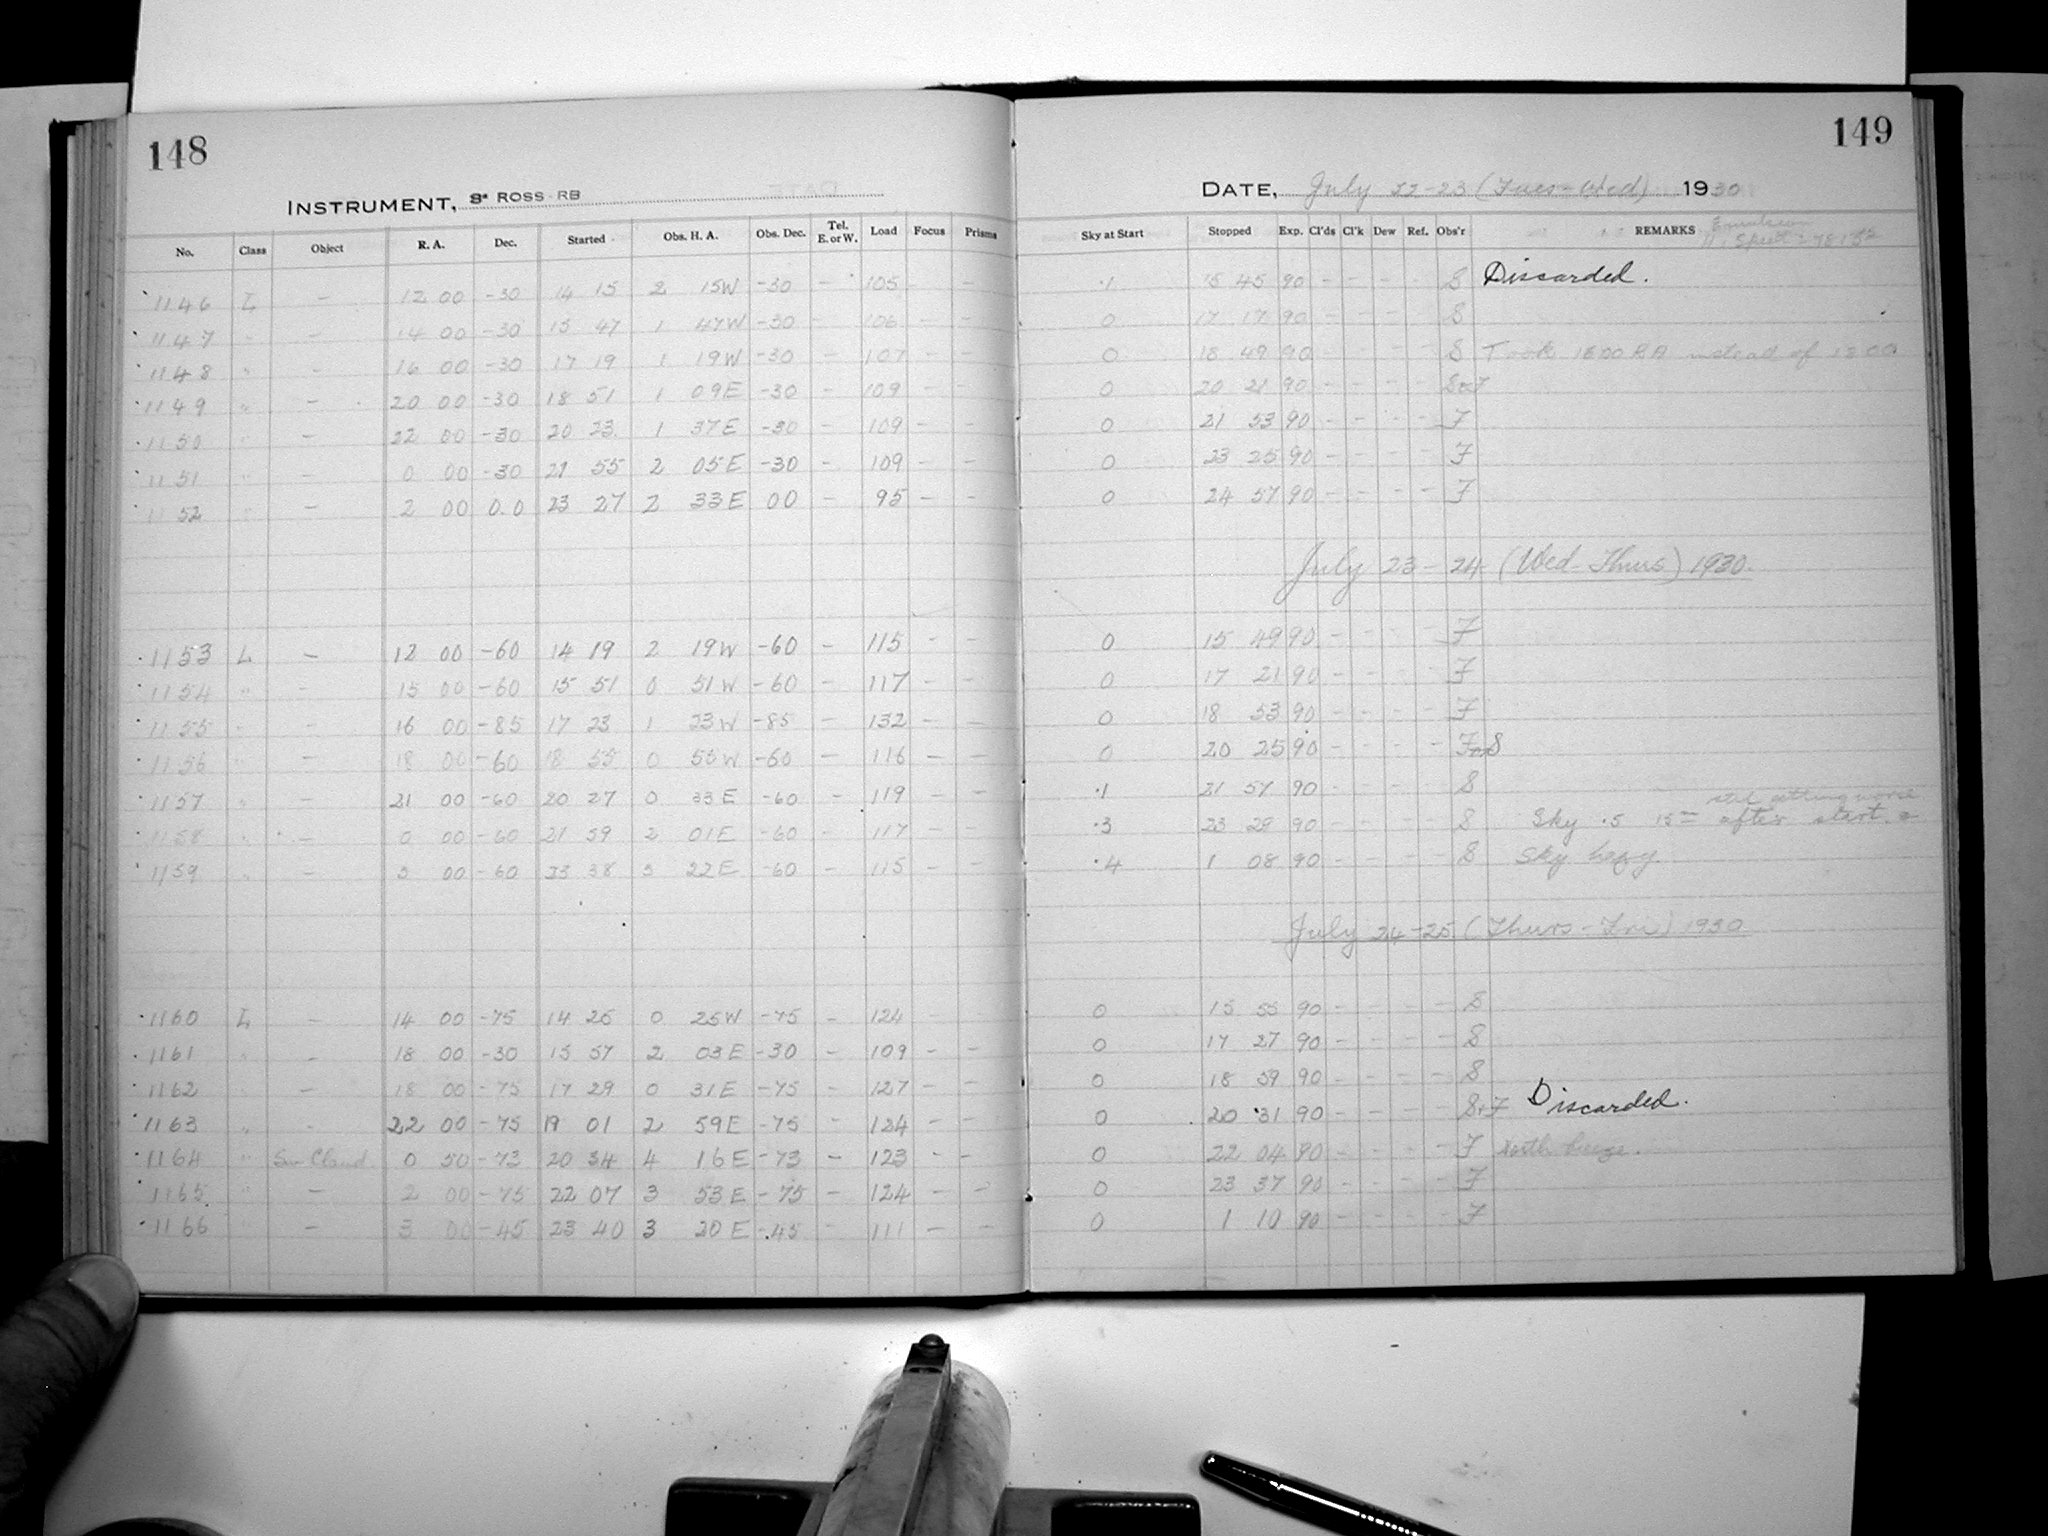 148
INSTRUMENT, 8" ROSS-RB
No. Class Object R. A. Dec. Started Obs. H. A. Obs. Dec. Tel. E. or W. Load Focus Prisms
1146 L — 12 00 -30 14 15 2 15W -30 — 105 — —
1147 " — 14 00 -30 15 47 1 47W -30 — 106 — —
1148 " — 16 00 -30 17 19 1 19W -30 — 107 — —
1149 " — 20 00 -30 18 51 1 09E -30 — 109 — —
1150 " — 22 00 -30 20 23 1 37E -30 — 109 — —
1151 " — 0 00 -30 21 55 2 05E -30 — 109 — —
1152 " — 2 00 0.0 23 27 2 33E 00 — 95 — —
1153 L — 12 00 -60 14 19 2 19W -60 — 115 - —
1154 " — 15 00 -60 15 51 0 51W -60 — 117 — —
1155 " — 16 00 -85 17 23 1 23W -85 — 132 — —
1156 " — 18 00 -60 18 55 0 55W -60 — 116 — —
1157 " — 21 00 -60 20 27 0 33E -60 — 119 — —
1158 " — 0 00 -60 21 59 2 01E -60 — 117 — —
1159 " — 3 00 -60 23 38 3 22E -60 — 115 — —
1160 L — 14 00 -75 14 25 0 25W -75 — 124 — —
1161 " — 18 00 -30 15 57 2 03E -30 — 109 — —
1162 " — 18 00 -75 17 29 0 31E -75 — 127 — —
1163 " - 22 00 -75 19 01 2 59E -75 — 124 — —
1164 " Sm Cloud 0 50 -73 20 34 4 16E -73 — 123 - —
1165 " — 2 00 -75 22 07 3 53E -75 — 124 — —
1166 " — 3 00 -45 23 40 3 20E -45 — 111 — —
149
DATE, July 22-23 (Tues-Wed) 1930
Sky at Start Stopped Exp. Cl'ds Cl'k Dew Ref. Obs'r REMARKS Emulsion
.1 15 45 90 - - - - S Discarded.
0 17 17 90 - - - - S
0 18 49 90 - - - - S Took 1600 RA instead of 18 00
0 20 21 90 - - - - S & F
0 21 53 90 - - - - F
0 23 25 90 - - - - F
0 24 57 90 - - - - F
July 23-24 (Wed-Thurs) 1930.
0 15 49 90 - - - - F
0 17 21 90 - - - - F
0 18 53 90 - - - - F
0 20 25 90 - - - - F and S
.1 21 57 90 - - - - S
still getting worse
.3 23 29 90 - - - - S Sky .5 15m after start. &
.4 1 08 90 - - - - S Sky hazy.
July 24-25 (Thurs-Fri) 1930
0 15 55 90 - - - - S
0 17 27 90 - - - - S
0 18 59 90 - - - - S
0 20 31 90 - - - - S+F Discarded.
0 22 04 90 - - - - F North breeze.
0 23 37 90 - - - - F
0 1 10 90 - - - - F